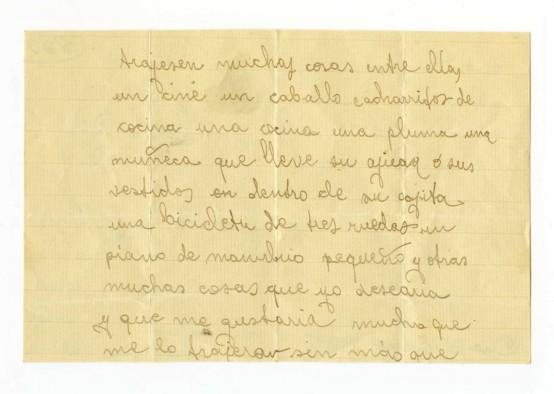 trajesen muchas cosas entre ellas
un cine un caballo cacharritos de
cocina una cocina una pluma una
muñeca que lleve su o sus
vestidos en dentro de su cajita
una bicicleta de tres ruedas un
piano de manubrio pequeño y otras
muchas cosas que yo desearia
y que me gustaria mucho que
me lo trajeran sin más que